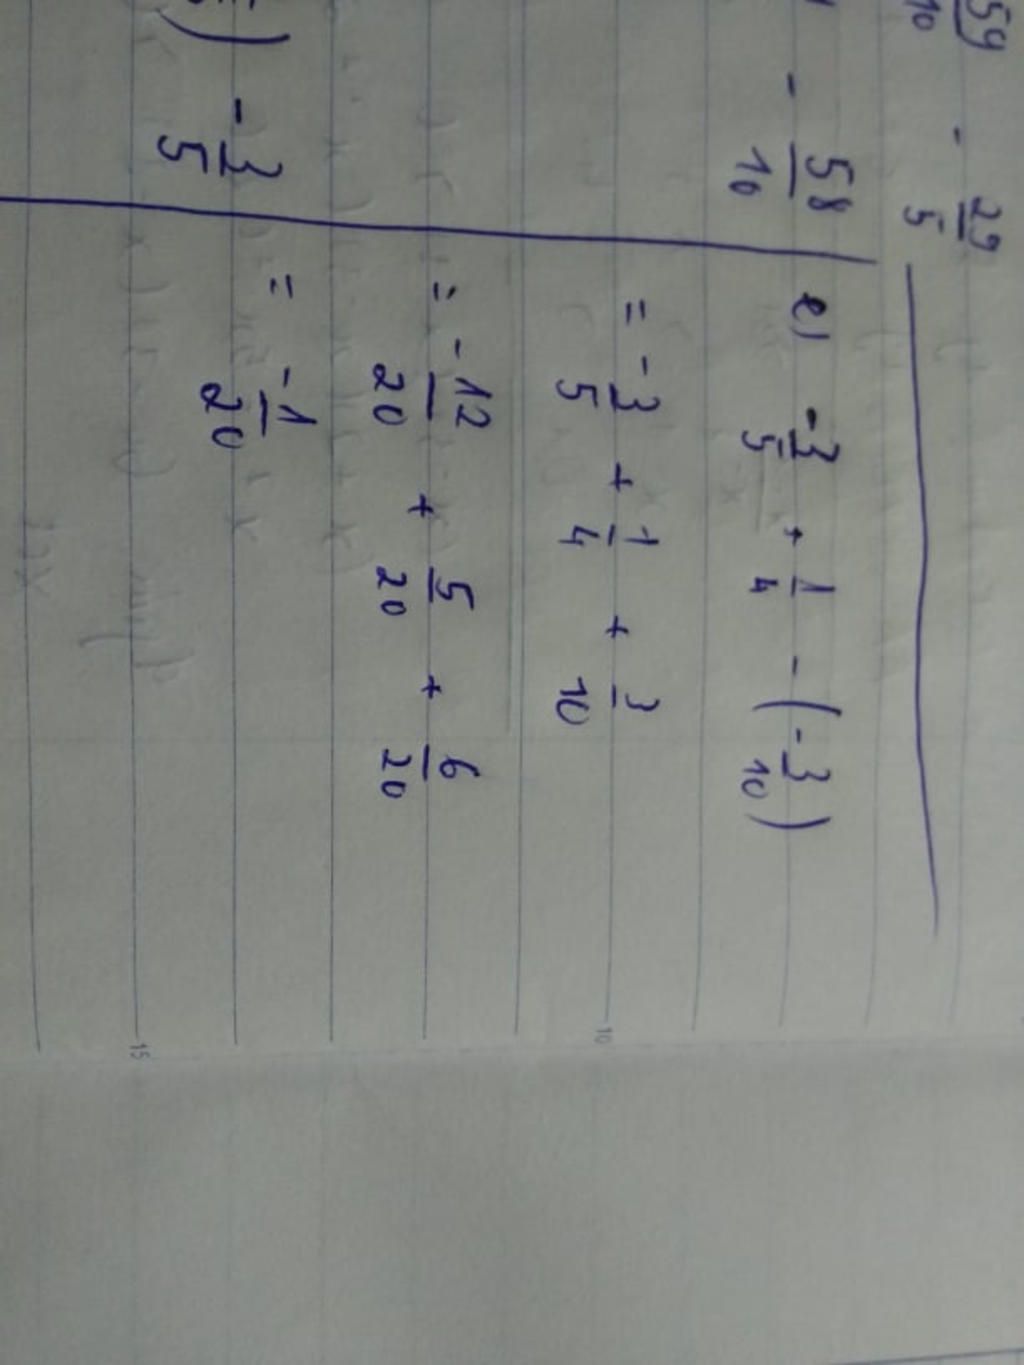 59/10 - 29/5
- 58/10
) - 3/5
e) -3/5 + 1/4 - (-3/10)
= -3/5 + 1/4 + 3/10
= -12/20 + 5/20 + 6/20
= -1/20
10
15